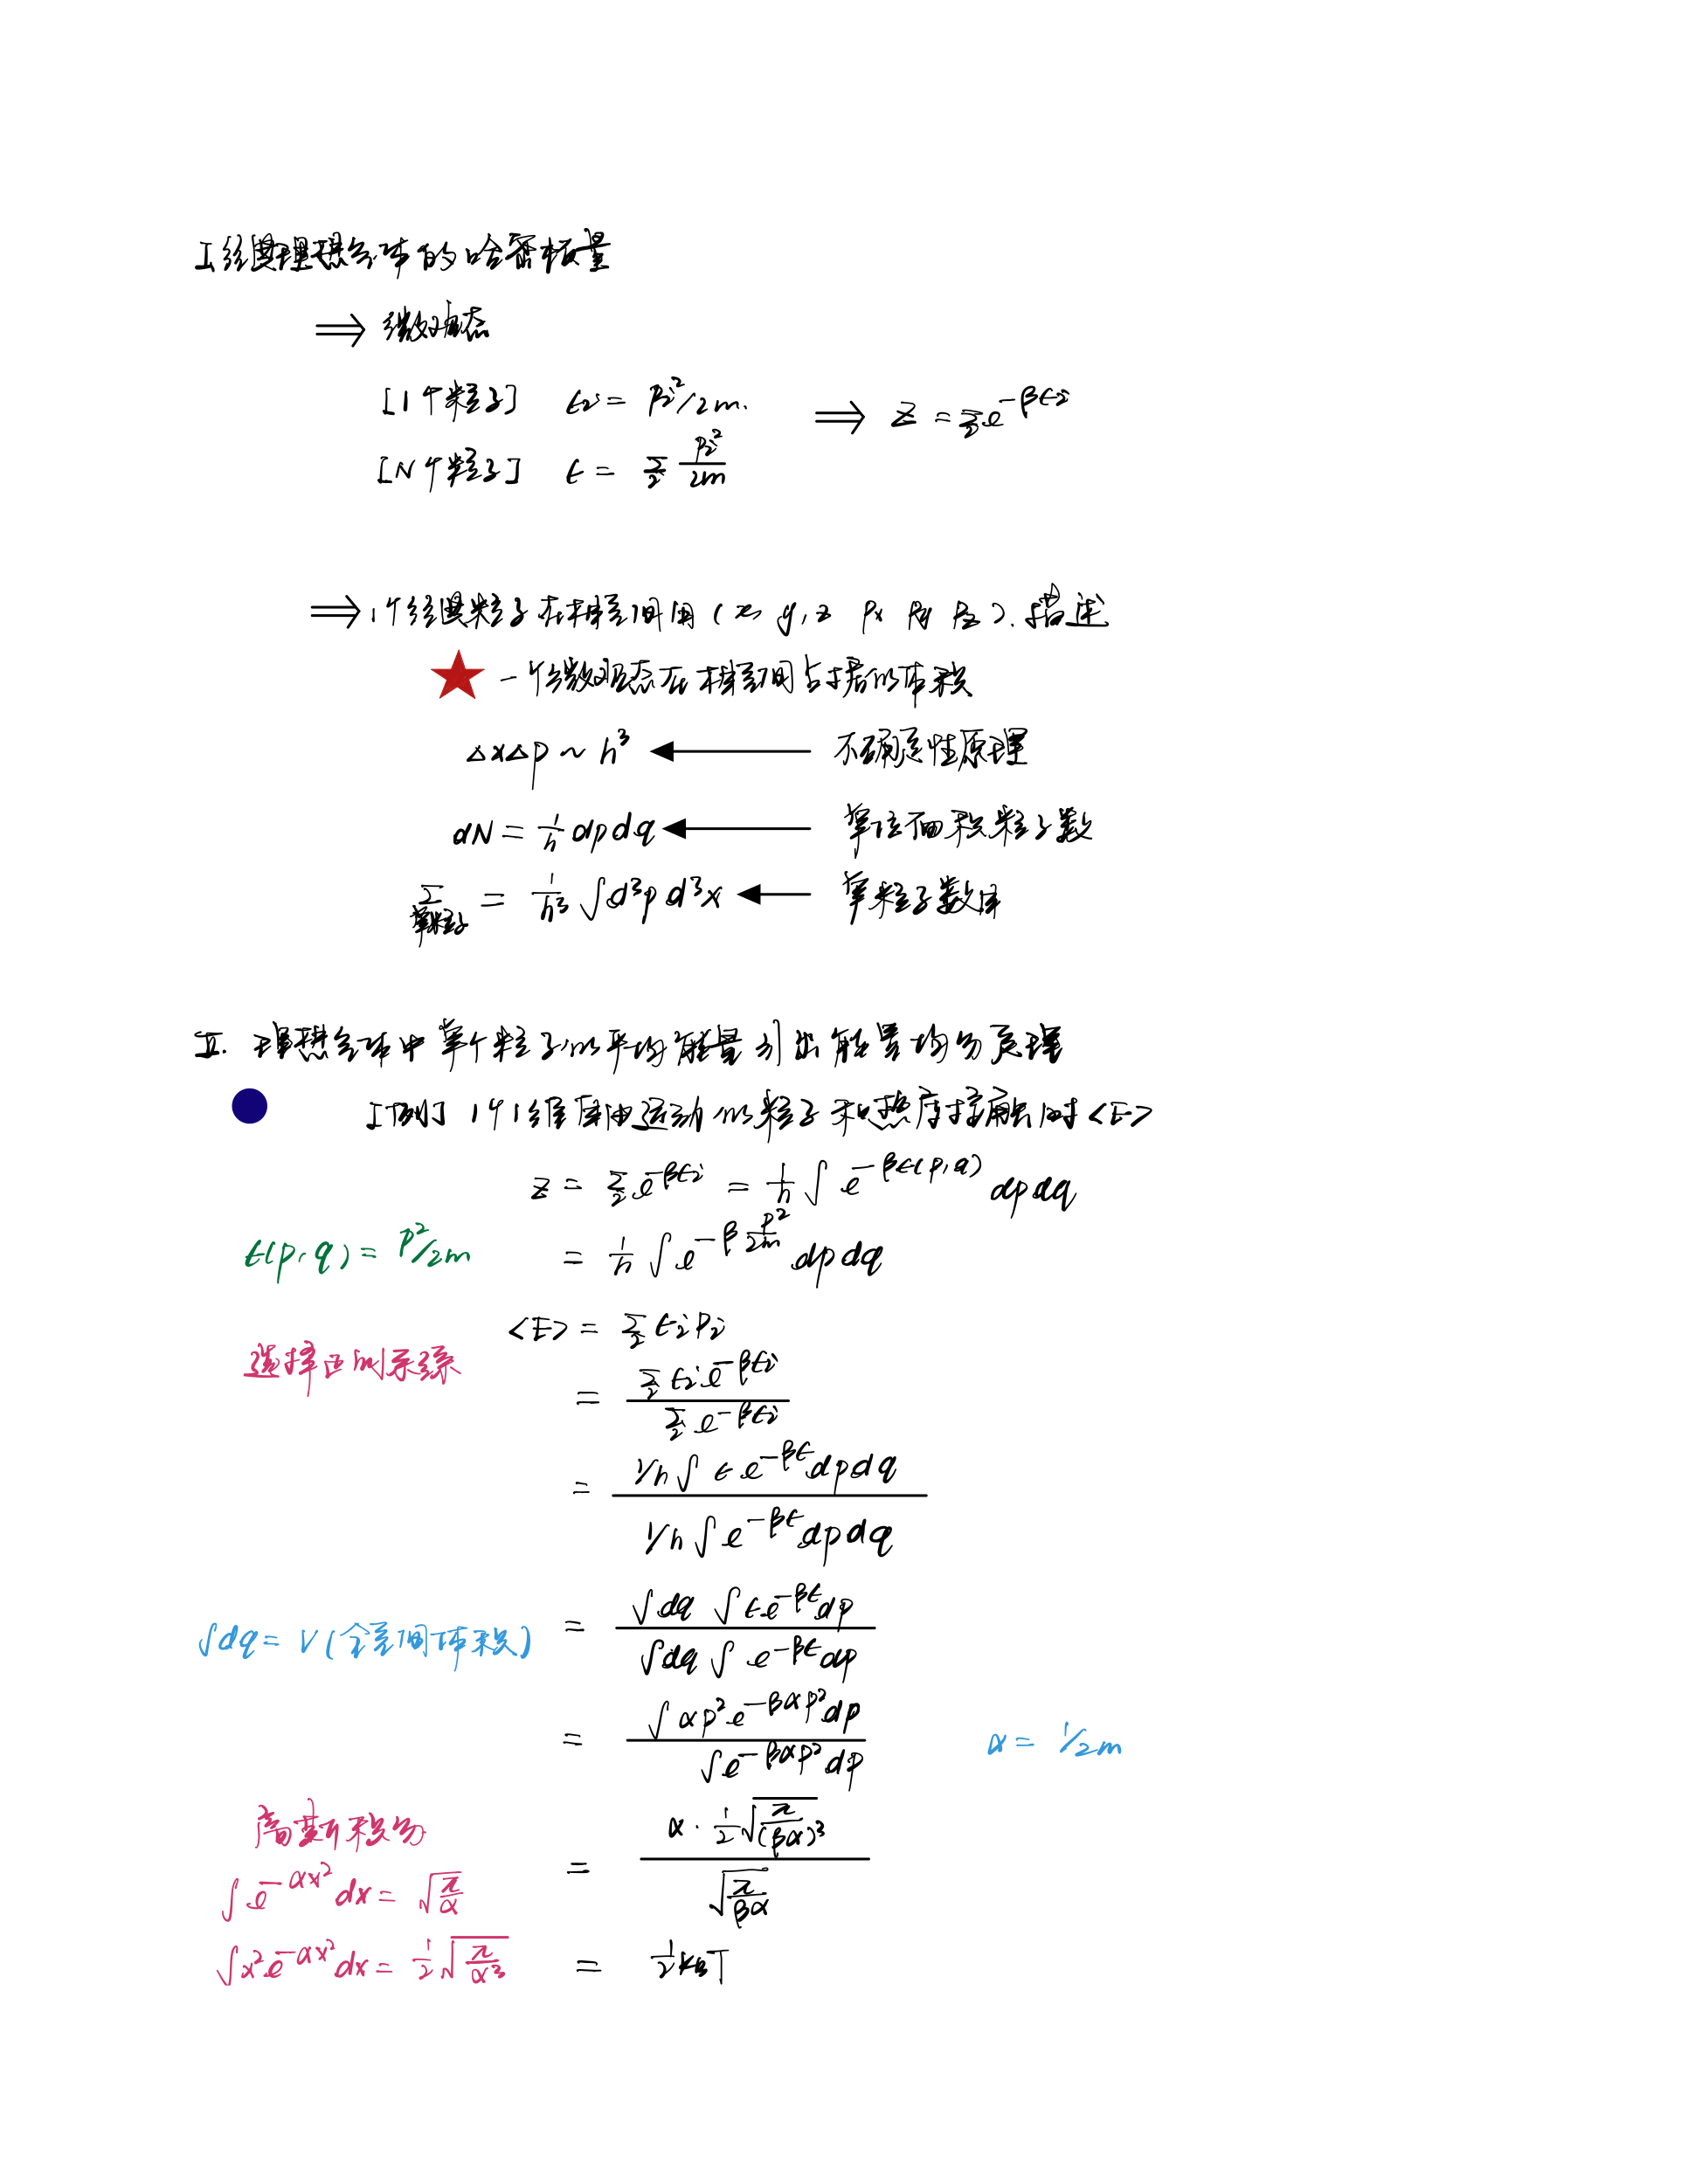 I.经典理想气体的哈密顿量
⟹ 微观态
[1个粒子] εi = Pi²/2m. ⟹ Z = Σi e^(-βεi)
[N个粒子] ε = Σi Pi²/2m
⟹ 1个经典粒子在相空间用(x, y, z Px Py Pz).描述
★ 一个微观态在相空间占据的体积
ΔxΔp ~ h³ ← 不确定性原理
dN = 1/h dpdq ← 单位面积粒子数
Σ单粒子 = 1/h³ ∫d³p d³x ← 单粒子数
II. 理想气体中单个粒子的平均能量引出能量均分原理
[例] 1个1维自由运动的粒子和热库接触时<E>
Z = Σi e^(-βεi) = 1/h ∫ e^(-βε(p,q)) dpdq
ε(p,q) = P²/2m
= 1/h ∫ e^(-β p²/2m) dpdq
<E> = Σi εi Pi
选择正则系综
= Σi εi e^(-βεi) / Σi e^(-βεi)
= 1/h ∫ ε e^(-βε) dpdq / 1/h ∫ e^(-βε) dpdq
∫dq = V(全空间体积)
= ∫dq ∫ε e^(-βε) dp / ∫dq ∫ e^(-βε) dp
= ∫ αp² e^(-βαp²) dp / ∫e^(-βαp²) dp
α = 1/2m
高斯积分
= α · 1/2 √(π/(βα)³) / √(π/βα)
∫e^(-αx²) dx = √(π/α)
∫x² e^(-αx²) dx = 1/2 √(π/α³)
= 1/2 kBT